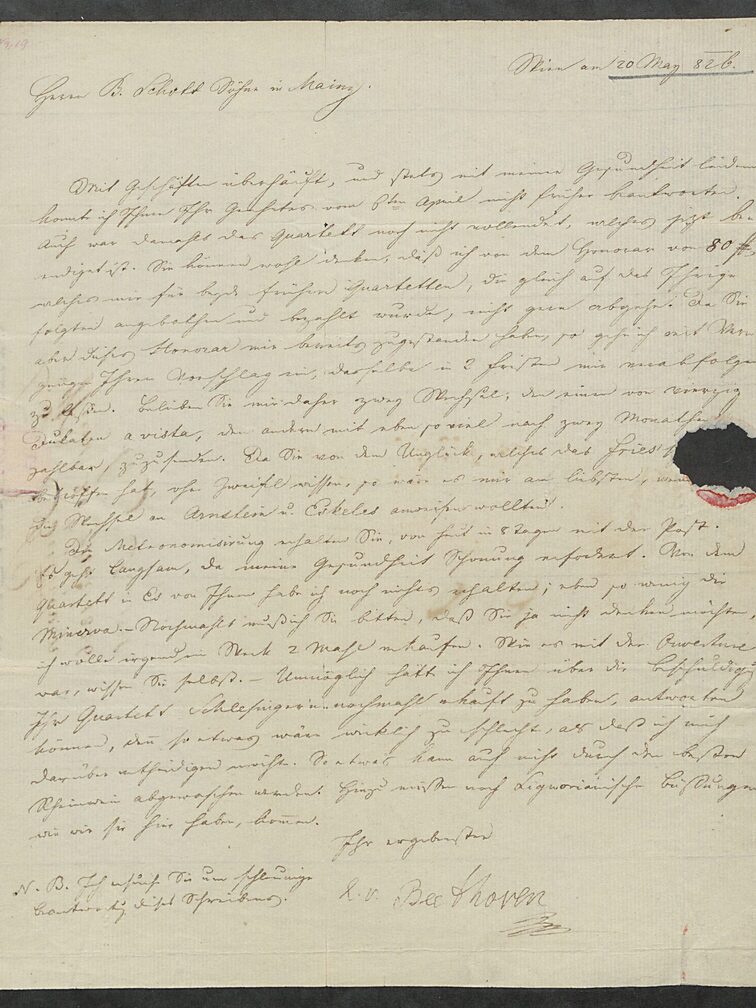 Wien am 20 May 826.
Herrn B. Schott Söhne in Mainz.
Mit Geschäften überhäuft, und stets mit meiner Gesundheit leidend
konnte ich Ihnen Ihr Geehrtes vom 6ten April nicht früher beantworten.
Auch war damahls das Quartett noch nicht vollendet, welches jetzt be
endiget ist. Sie können wohl denken, daß ich von dem Honorar von 80 #,
welches mir für beyde frühern Quartetten, die gleich auf das Ihrige
folgten angebothen und bezahlt wurde, nicht gern abgehe. Da Sie
aber dieses Honorar mir bereits zugestanden haben, so gehe ich mit Ver
gnügen Ihren Vorschlag ein, dasselbe in 2 Fristen mir verabfolgen
zu lassen. Belieben Sie mir daher zwey Wechsel, den einen von vierzig
Dukaten a vista, den andern mit eben so viel nach zwey Monathen
zahlbar, zuzusenden. Da Sie von dem Unglück, welches das Fries
betroffen hat, ohne Zweifel wissen, so wäre es mir am liebsten, wenn
die Wechsel an Arnstein u Eskeles anweisen wollten.
Die Metronomisirung erhalten Sie, von heut in 8 Tagen mit der Post.
Es geht langsam, da meine Gesundheit Schonung erfodert. Von dem
Quartett in Es von Ihnen habe ich noch nichts erhalten; eben so wenig die
Minerva. – Nochmahls muß ich Sie bitten, daß Sie ja nicht denken möchten,
ich wolle irgend ein Werk 2 Mahl verkaufen. Wie es mit der Ouverture
war, wissen Sie selbst. – Unmöglich hätte ich Ihnen über die Beschuldigung
Ihr Quartett Schlesinger'n nochmahl verkauft zu haben, antworten
können, denn so etwas wäre wirklich zu schlecht, als daß ich mich
darüber vertheidigen möchte. So etwas kann auch nicht durch den besten
Rheinwein abgewaschen werden. Hiezu müssen noch Liquorianische Büßungen
wie wir sie hier haben, kommen.
Ihr ergebenster
L. v. Beethoven
N. B. Ich ersuche Sie um schleunige
Beantwortg dieses Schreibens.